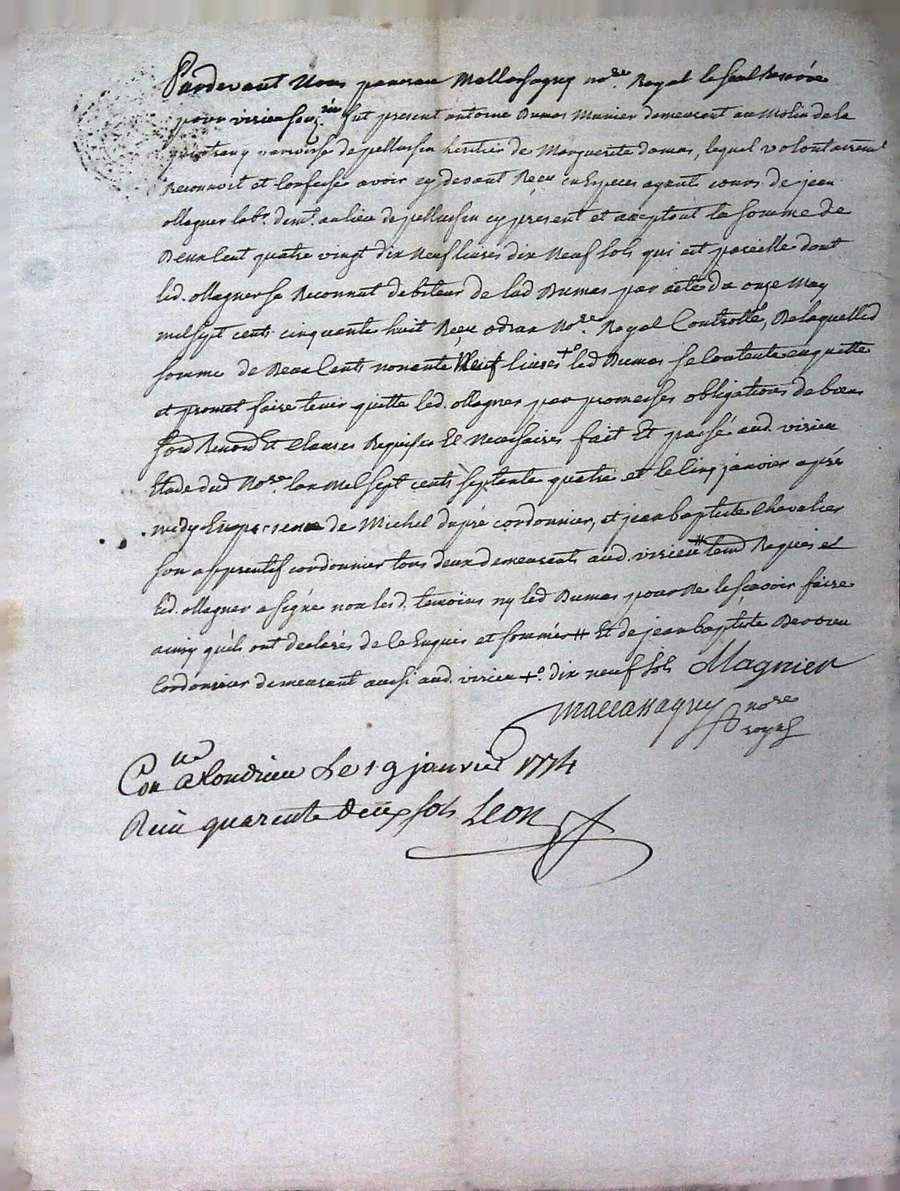 Pardevant Nous pancrau Mallassagny no.re Royal le seul Reservé
pour virieu soug.né fut present antoine Dumas Munier demeurant au Molin de la
paroisse de pellussin heritier de Marguerite damas, lequel volontairement
Reconnoit et Confesse avoir cy devant Reçu en Especes agents cours de jean
ollagner lab.r dem.t au lieu de pellussin cy present et aceptant la somme de
Deux Cent quatre vingt dix Neuf livres dix Neuf sols qui est pareille dont
led. ollagner se Reconnut debiteur de lad Dumas par acte du onze May
mil sept cents cinquante huit Reçu odras No.re Royal Controllé, De laquelle d
somme de Deux Cents nonante Neuf livres +° led Dumas se Contente en quitte
et promet faire tenir quitte led. ollagner par promesses obligations de biens
soud Renond et clauses Requises et Necessaires fait Et passé aud. virieu
Etude dud No.re l'an Mil sept cents septante quatre et le Cinq janvier après
midy En presence de Michel dupré cordonnier, et jean baptiste Chevalier
son apprentif cordonnier tous deux demeurants aud. virieu # temd Requis et
led. ollagner a signé non les d. temoins ny led Dumas pour Ne le sçavoir faire
ainsy qu'ils ont declarés de ce Enquis et sommés # Et de jean baptiste
Cordonnier demeurant aussi aud. virieu +° dix neuf sols Ollagnier
Mallassagny no.re
royal
Con.llé a Condrieu Le 19 janvier 1774
Reçu quarente deux sols Leon